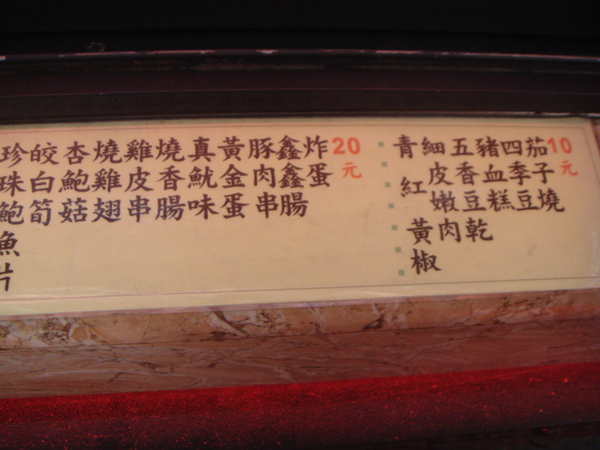 10元
茄子燒
四季豆
豬血糕
五香豆乾
細皮嫩肉
青紅黃椒
20元
炸蛋
鑫鑫腸
豚肉串
黃金蛋
真魷味
燒香腸
雞皮串
燒雞翅
杏鮑菇
皎白筍
珍珠鮑魚片